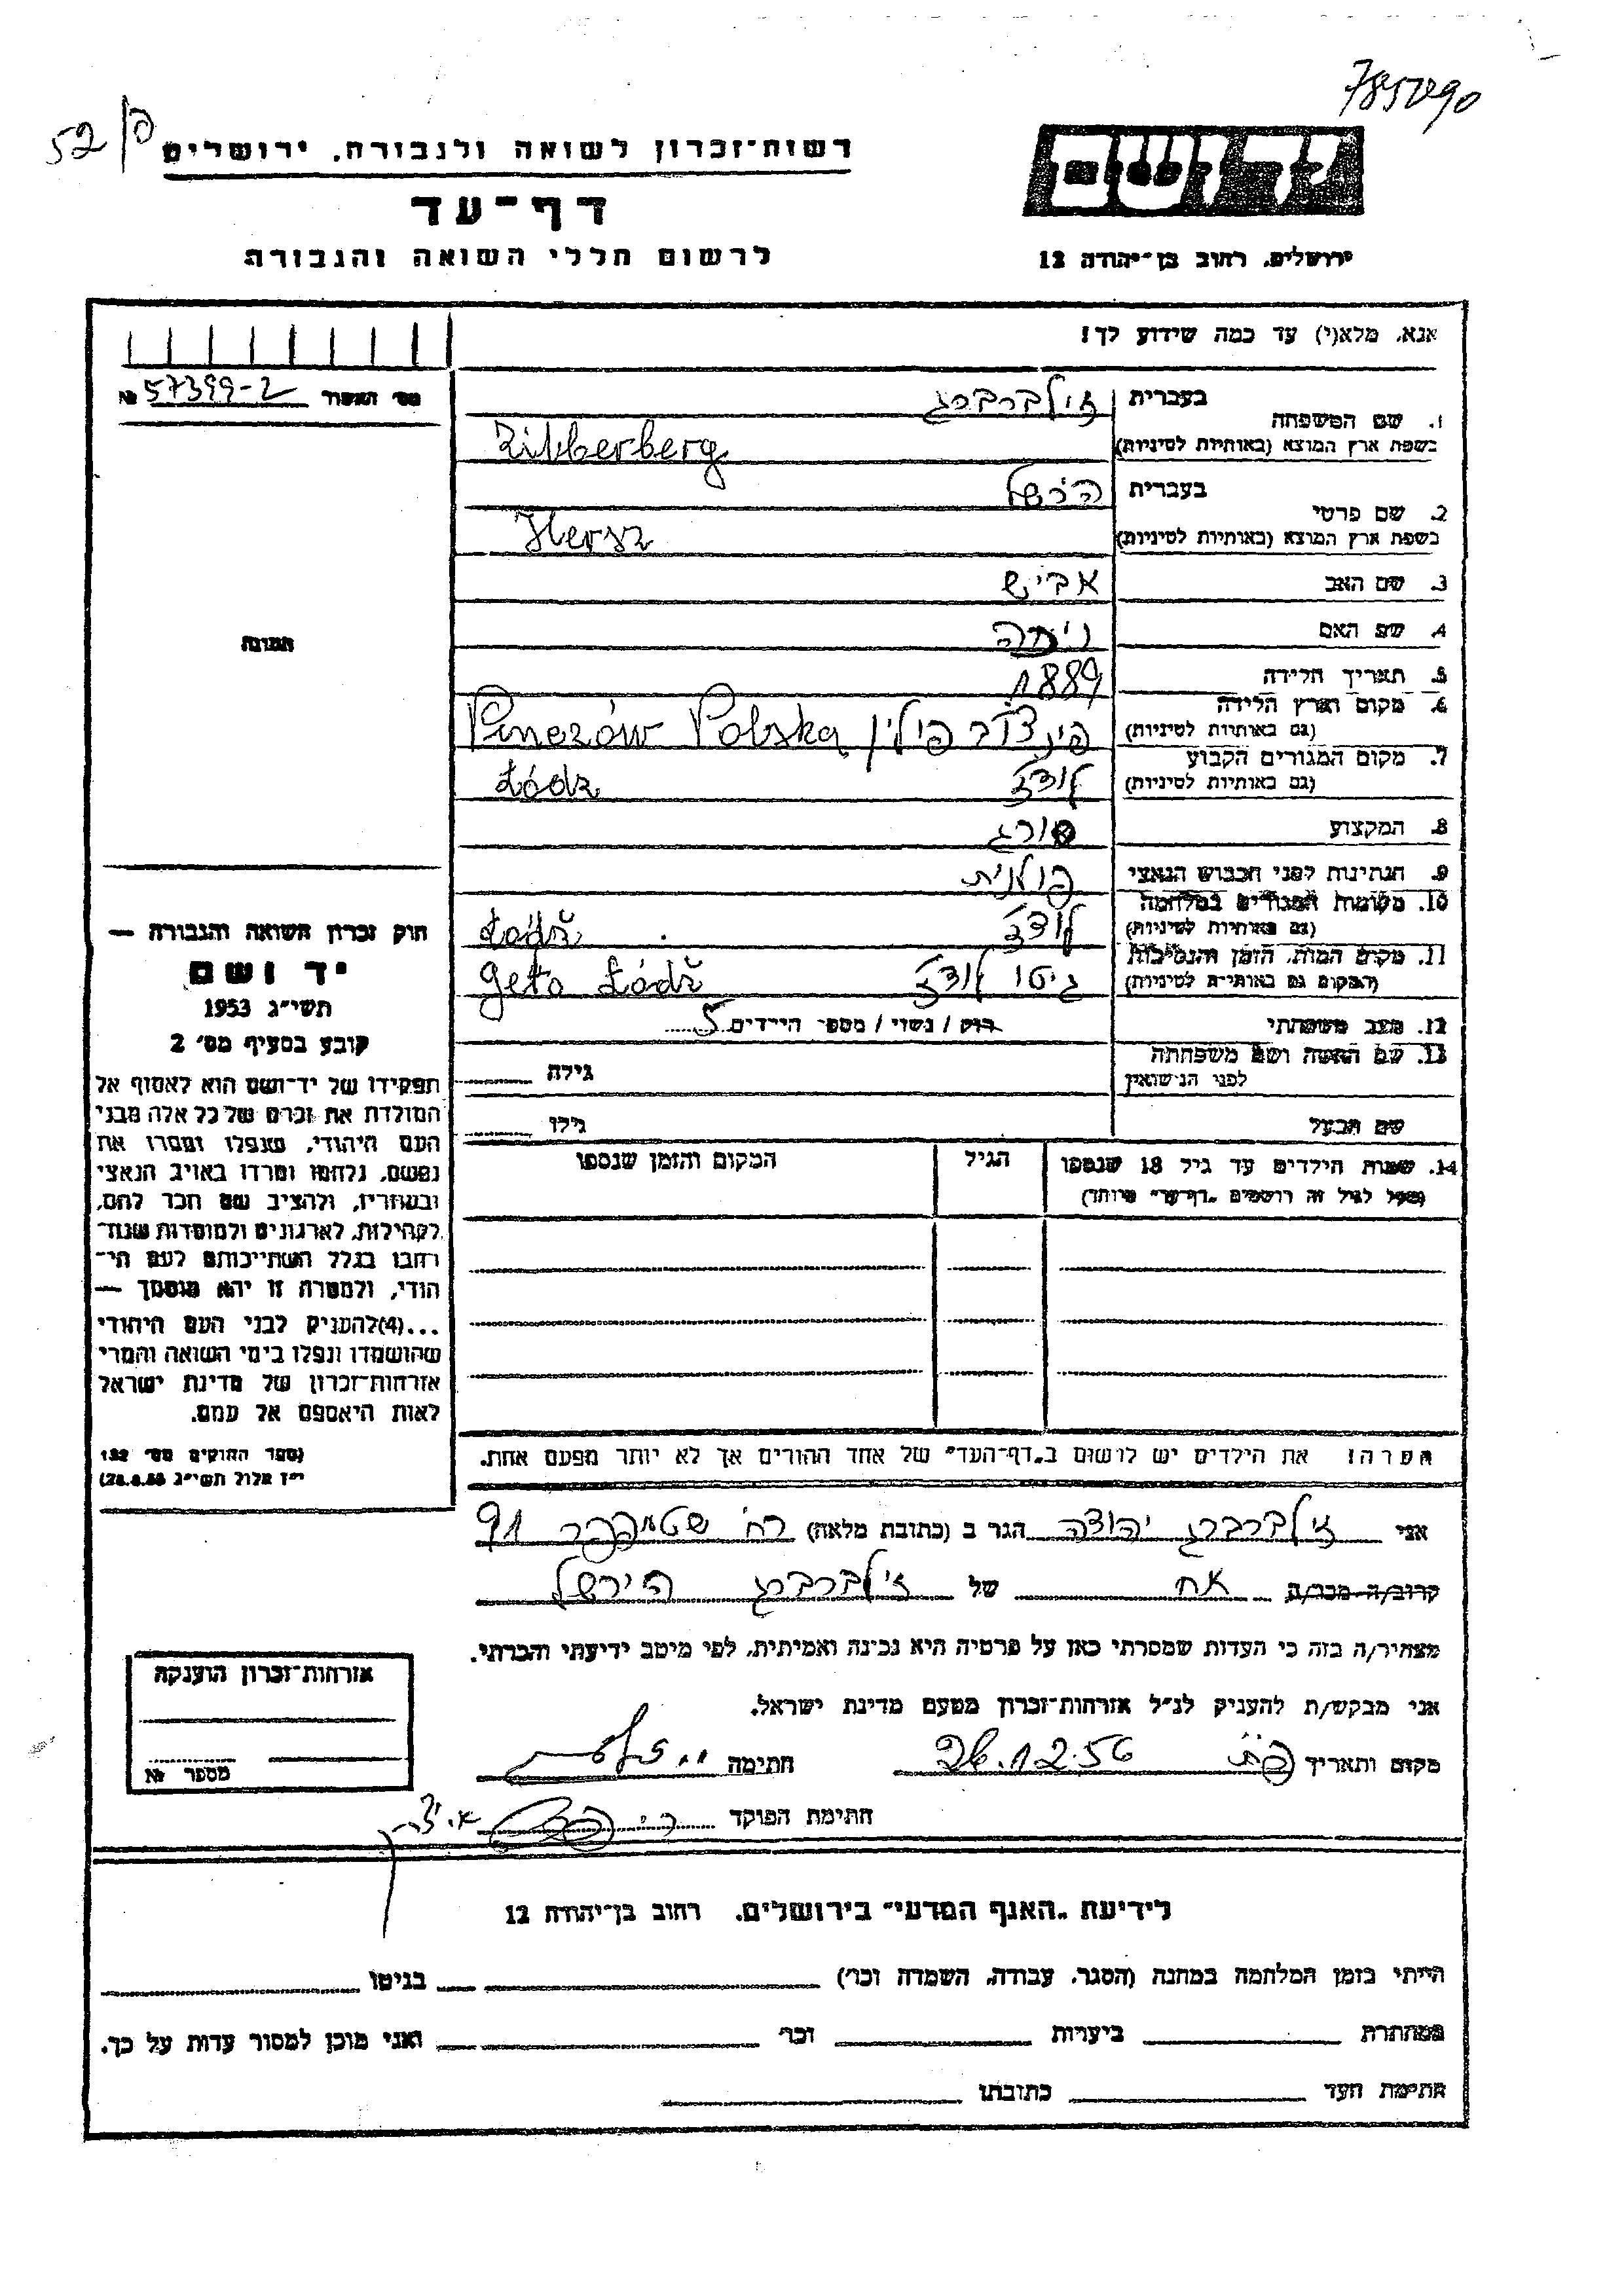 7857290
52/פ
רשות-זכרון לשואה ולגבורה, ירושלים
יד ושם
דף-עד
לרשום חללי השואה והגבורה
ירושלים, רחוב בן-יהודה 12
אנא, מלא(י) עד כמה שידוע לך!
מס׳ האשור 57399-2 №
1. שם המשפחה
בעברית זילברברג
בשפת ארץ המוצא (באותיות לטיניות) Zilberberg
2. שם פרטי
בעברית הירשל
בשפת ארץ המוצא (באותיות לטיניות) Hersz
3. שם האב אביש
4. שם האם
5. תאריך הלידה 1889
6. מקום וארץ הלידה
(גם באותיות לטיניות) פינצ׳וב פולין Pinczów Polska
7. מקום המגורים הקבוע
(גם באותיות לטיניות) לודז׳ Łódz
8. המקצוע סורג
9. הנתינות לפני הכבוש הנאצי פולנית
10. מקומות המגורים במלחמה
(גם באותיות לטיניות) לודז׳ Łódź
11. מקום המות, הזמן והנסיבות
(המקום גם באותיות לטיניות) גיטו לודז׳ Geto Łódź
12. מצב משפחתי רוק / נשוי / מספר הילדים 5
13. שם האשה ושם משפחתה
לפני הנישואין גילה
שם הבעל גילו
14. שמות הילדים עד גיל 18 שנספו הגיל המקום והזמן שנספו
(מעל לגיל זה רושמים "דף-עד" מיוחד)
הערה! את הילדים יש לרשום ב"דף-העד" של אחד ההורים אך לא יותר מפעם אחת.
תמונה
חוק זכרון השואה והגבורה —
יד ושם
תשי״ג 1953
קובע בסעיף מס׳ 2
תפקידו של יד-ושם הוא לאסוף אל
המולדת את זכרם של כל אלה מבני
העם היהודי, שנפלו ומסרו את
נפשם, נלחמו ומרדו באויב הנאצי
ובעוזריו, ולהציב שם וזכר להם,
לקהילות, לארגונים ולמוסדות שנח-
רבו בגלל השתייכותם לעם הי-
הודי, ולמטרה זו יהא מוסמך —
...(4)להעניק לבני העם היהודי
שהושמדו ונפלו בימי השואה והמרי
אזרחות-זכרון של מדינת ישראל
לאות היאספם אל עמם.
(ספר החוקים מס׳ 132
י״ז אלול תשי״ג 28.8.53)
אני זילברברג יהודה הגר ב (כתובת מלאה) רח׳ שטמפפר 91
קרוב/ה מכר/ה אח של זילברברג הירשל
מצהיר/ה בזה כי העדות שמסרתי כאן על פרטיה היא נכונה ואמיתית, לפי מיטב ידיעתי והכרתי.
אני מבקש/ת להעניק לנ״ל אזרחות-זכרון מטעם מדינת ישראל.
מקום ותאריך פ״ת 26.12.56 חתימה
חתימת הפוקד
אזרחות-זכרון הוענקה
מספר №
לידיעת "האגף המדעי" בירושלים, רחוב בן-יהודה 12
הייתי בזמן המלחמה במחנה (הסגר, עבודה, השמדה וכו׳) בגיטו
במחתרת ביערות וכו׳ ואני מוכן למסור עדות על כך.
חתימת העד כתובתו